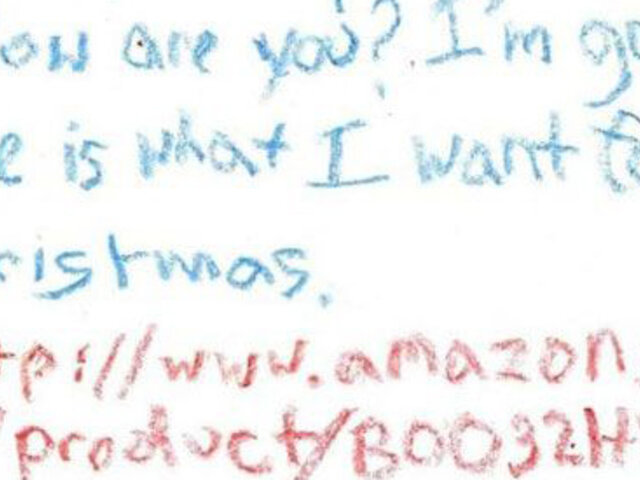 ow are you? I'm g
e is what I want f
ristmas.
tp://www.amazon.
/product/B0032H